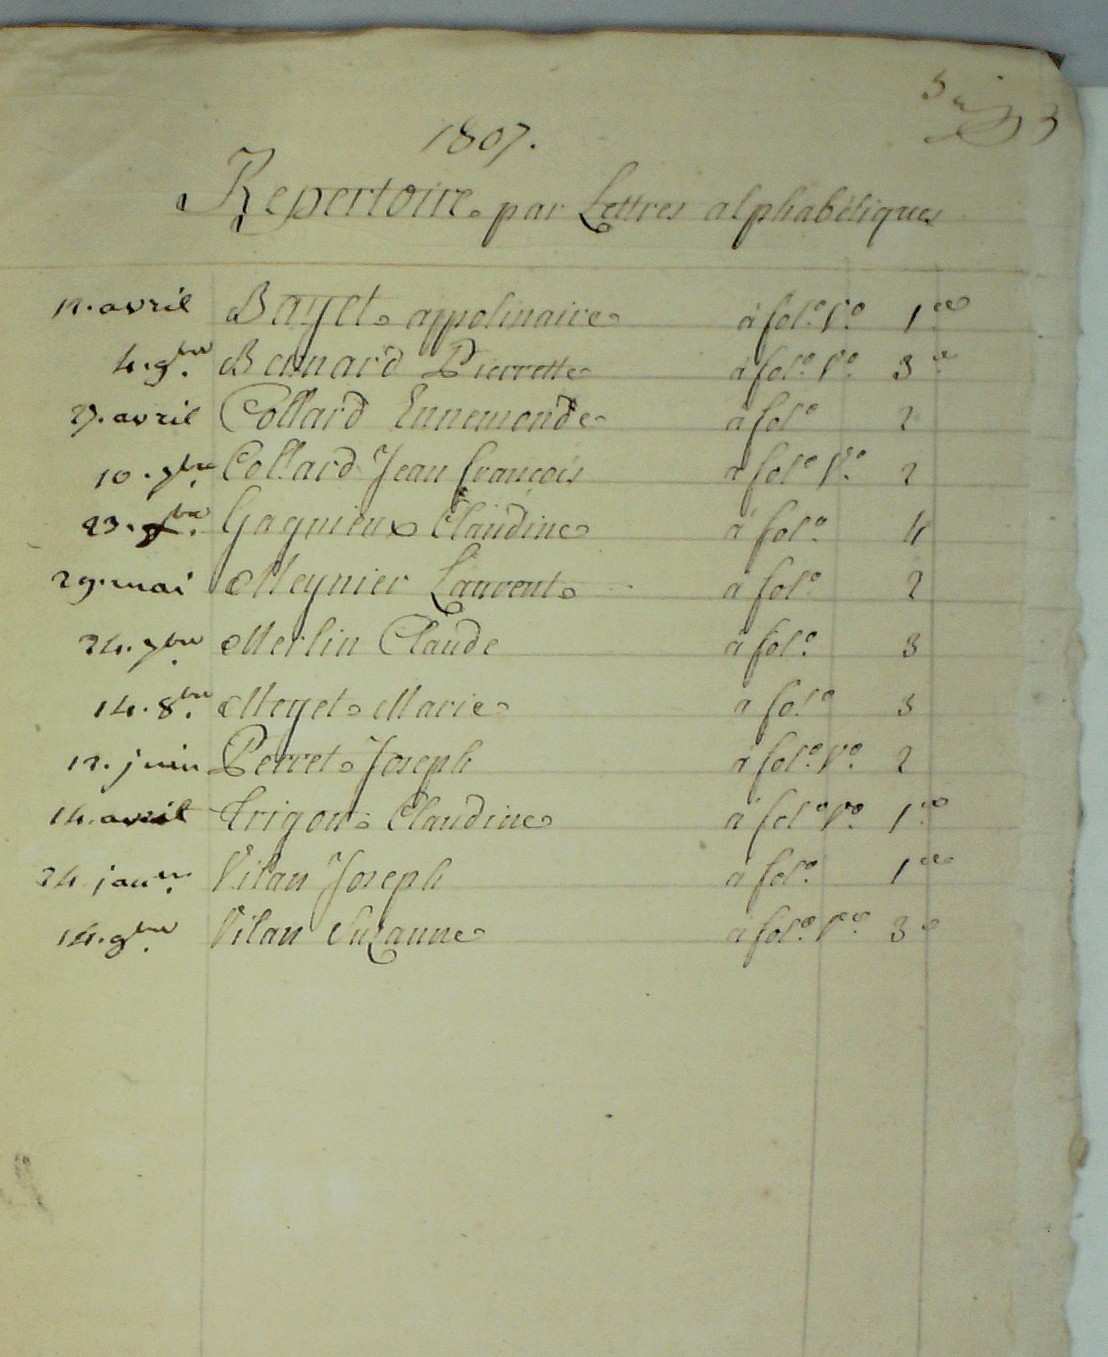 1807.
Repertoire par Lettres alphabétiques
12. avril Bayet appolinaire à fol.o V.o 1.er
4. 9bre. Bernard Pierrette à fol.o V.o 3.e
27. avril Collard Ennemonde à fol.o 2
10. 7bre. Collard Jean françois à fol.o V.o 2
23. 9bre. Gagnieux Claudine à fol.o 4
29. mai Meynier Laurent à fol.o 2
24. 7bre. Merlin Claude à fol.o 3
14. 8bre. Meyet Marie à fol.o 3
12. juin Perret Joseph à fol.o V.o 2
14. avril Trigon Claudine à fol.o V.o 1.er
24. janer. Vilan Joseph à fol.o 1.er
14. 9bre. Vilan Suzanne à fol.o V.o 3.e